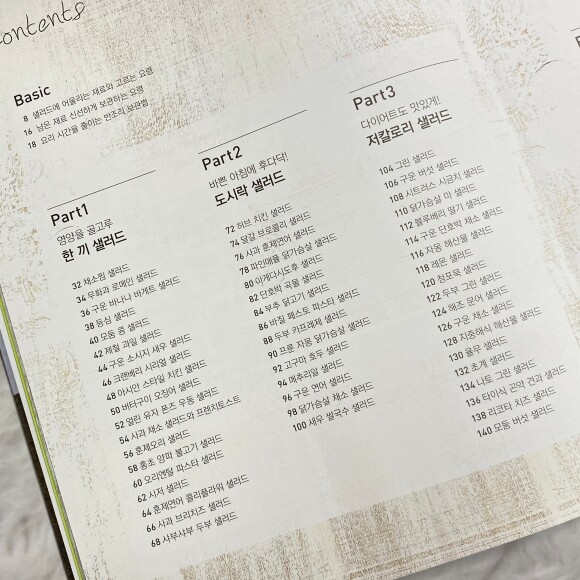 contents
Basic
8 샐러드에 어울리는 재료와 고르는 요령
16 남은 재료 신선하게 보관하는 요령
18 요리 시간을 줄이는 반조리 보관법
Part1
영양을 골고루
한 끼 샐러드
32 채소찜 샐러드
34 무화과 로메인 샐러드
36 구운 바나나 바게트 샐러드
38 등심 샐러드
40 모둠 콩 샐러드
42 제철 과일 샐러드
44 구운 소시지 새우 샐러드
46 크랜베리 시리얼 샐러드
48 아시안 스타일 치킨 샐러드
50 버터구이 오징어 샐러드
52 얼린 유자 폰즈 우동 샐러드
54 사과 채소 샐러드와 프렌치토스트
56 훈제오리 샐러드
58 홍초 양파 불고기 샐러드
60 오리엔탈 파스타 샐러드
62 시저 샐러드
64 훈제연어 콜리플라워 샐러드
66 사과 브리치즈 샐러드
68 샤부샤부 두부 샐러드
Part2
바쁜 아침에 후다닥!
도시락 샐러드
72 허브 치킨 샐러드
74 달걀 브로콜리 샐러드
76 사과 훈제연어 샐러드
78 파인애플 닭가슴살 샐러드
80 아게다시도후 샐러드
82 단호박 곡물 샐러드
84 부추 닭고기 샐러드
86 바질 페스토 파스타 샐러드
88 두부 카프레제 샐러드
90 프룬 자몽 닭가슴살 샐러드
92 고구마 호두 샐러드
94 메추리알 샐러드
96 구운 연어 샐러드
98 닭가슴살 채소 샐러드
100 새우 쌀국수 샐러드
Part3
다이어트도 맛있게!
저칼로리 샐러드
104 그린 샐러드
106 구운 버섯 샐러드
108 시트러스 시금치 샐러드
110 닭가슴살 마 샐러드
112 블루베리 딸기 샐러드
114 구운 단호박 채소 샐러드
116 자몽 해산물 샐러드
118 레몬 샐러드
120 청포묵 샐러드
122 두부 그린 샐러드
124 해초 문어 샐러드
126 구운 채소 샐러드
128 지중해식 해산물 샐러드
130 율무 샐러드
132 초계 샐러드
134 너트 그린 샐러드
136 타이식 곤약 견과 샐러드
138 리코타 치즈 샐러드
140 모둠 버섯 샐러드